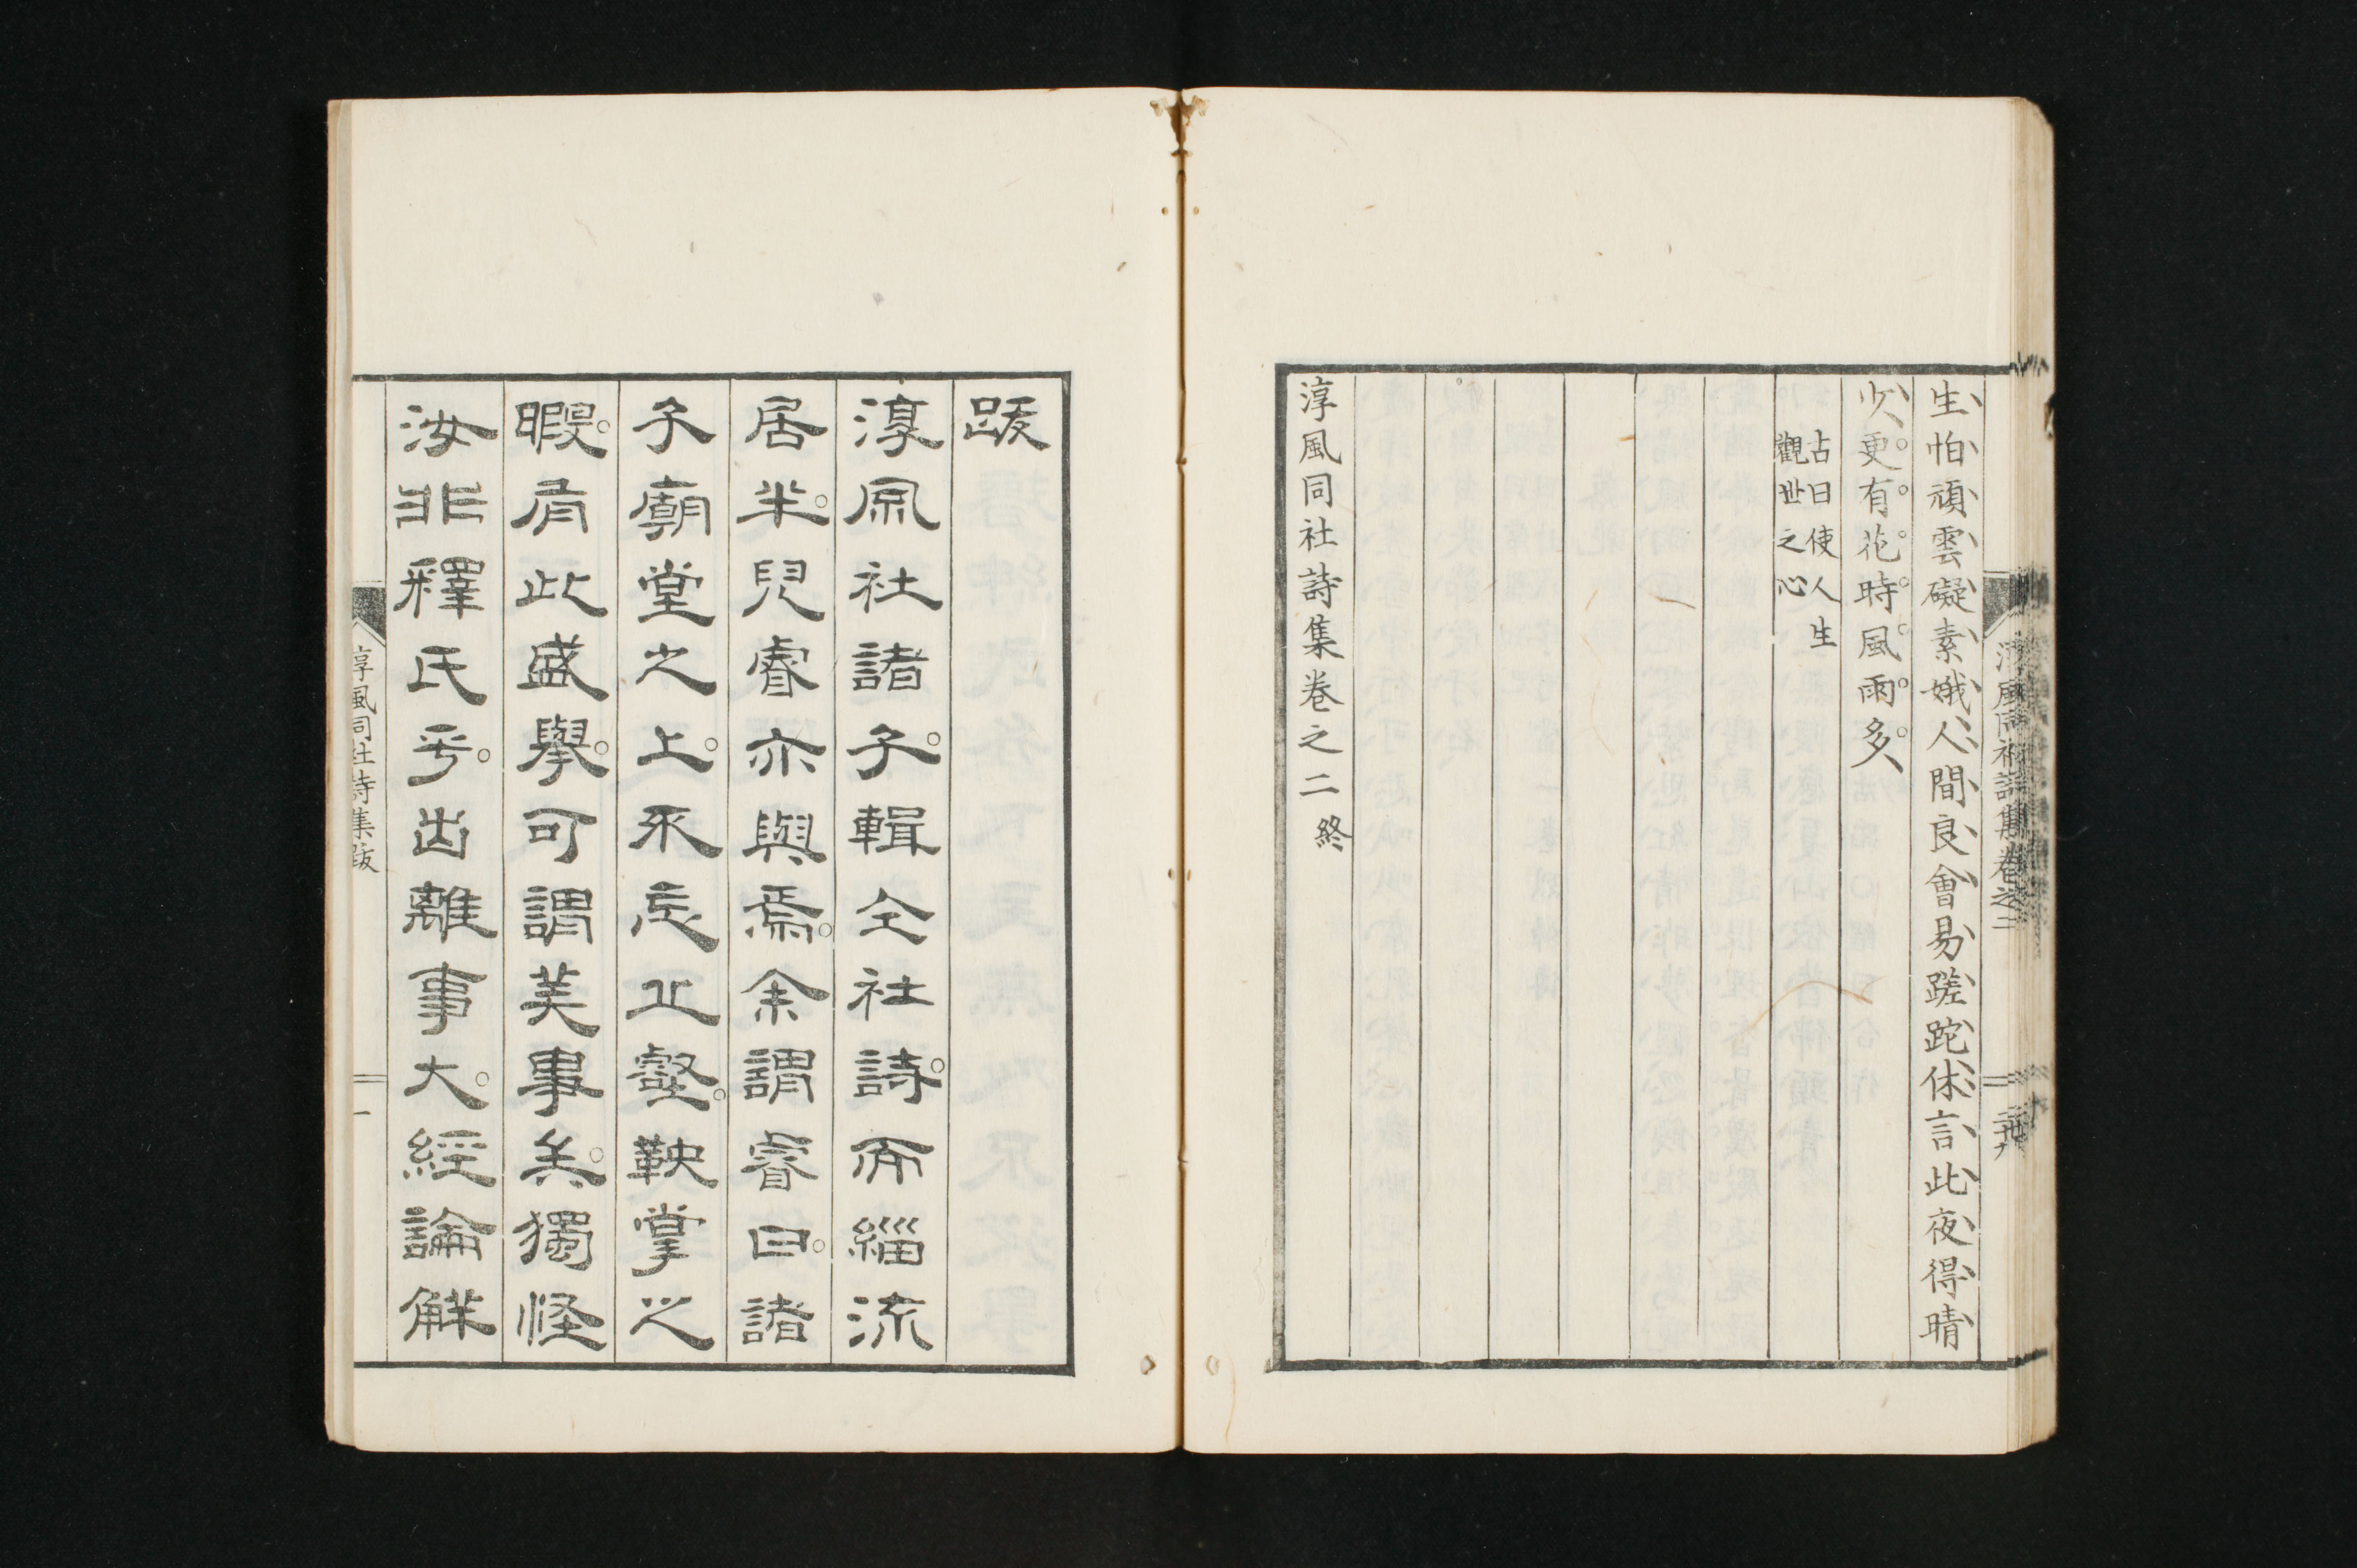 生怕頑雲礙素娥人間良會易蹉跎休言此夜得晴
少更有花時風雨多
占曰使人生
觀世之心
淳風同社詩集卷之二終
淳風同社詩集卷之二
跋
淳風社諸子輯仝社詩而緇流
居半兒睿亦與焉余謂睿曰諸
子廟堂之上不忘丘壑鞅掌之
暇有此盛擧可謂美事矣獨怪
汝非釋氏乎出離事大經論解
淳風同社詩集跋
一